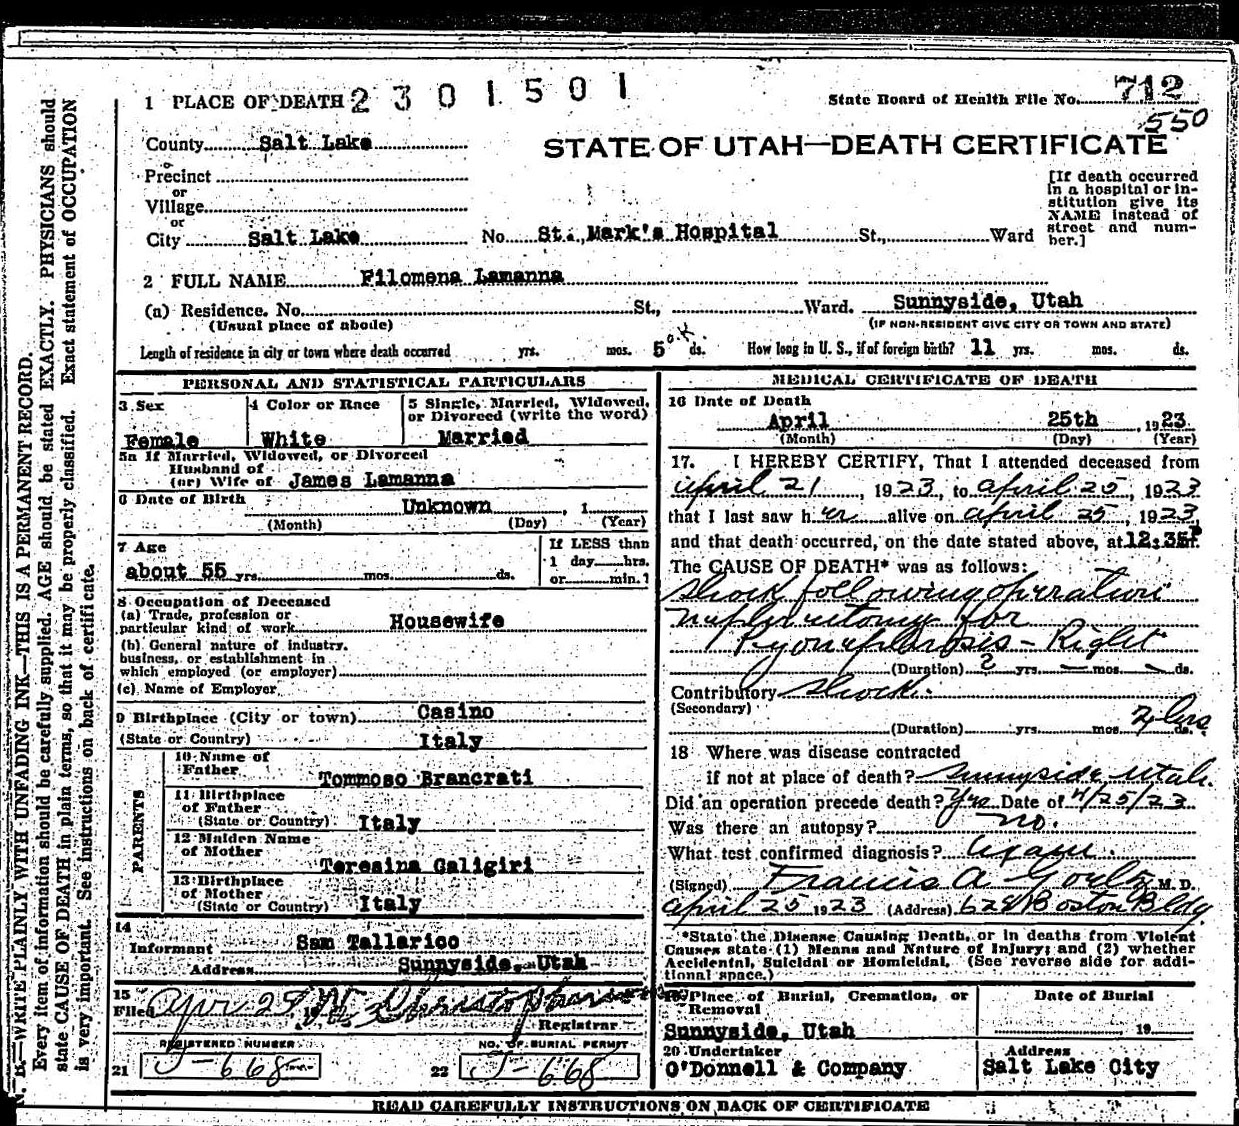 1 PLACE OF DEATH 2301501
State Board of Health File No. 712
550
STATE OF UTAH—DEATH CERTIFICATE
County Salt Lake
Precinct
or
Village
or
City Salt Lake No. St. Mark's Hospital St., Ward
[If death occurred in a hospital or institution give its NAME instead of street and number.]
2 FULL NAME Filomena Lamanna
(a) Residence. No. St., Ward. Sunnyside, Utah
(Usual place of abode) (IF NON-RESIDENT GIVE CITY OR TOWN AND STATE)
Length of residence in city or town where death occurred yrs. mos. 5 o.k. ds. How long in U. S., if of foreign birth? 11 yrs. mos. ds.
PERSONAL AND STATISTICAL PARTICULARS
3 Sex
Female
4 Color or Race
White
5 Single, Married, Widowed, or Divorced (write the word)
Married
5a If Married, Widowed, or Divorced
Husband of
(or) Wife of James Lamanna
6 Date of Birth Unknown , 1
(Month) (Day) (Year)
7 Age
about 55 yrs. mos. ds.
If LESS than
1 day hrs.
or min.?
8 Occupation of Deceased
(a) Trade, profession or
particular kind of work Housewife
(b) General nature of industry,
business, or establishment in
which employed (or employer)
(c) Name of Employer
9 Birthplace (City or town) Casino
(State or Country) Italy
PARENTS
10 Name of
Father Tommoso Brancrati
11 Birthplace
of Father
(State or Country) Italy
12 Maiden Name
of Mother
Teresina Galigiri
13 Birthplace
of Mother
(State or Country) Italy
14
Informant Sam Tallarico
Address Sunnyside, Utah
15
Filed Apr 25
Registrar
REGISTERED NUMBER
21 J-668
NO. OF BURIAL PERMIT
22 J-668
MEDICAL CERTIFICATE OF DEATH
16 Date of Death
April 25th , 1923
(Month) (Day) (Year)
17. I HEREBY CERTIFY, That I attended deceased from
April 21, 1923, to April 25, 1923
that I last saw h er alive on April 25, 1923,
and that death occurred, on the date stated above, at 12:35P m.
The CAUSE OF DEATH* was as follows:
Shock following operation
nephrectomy for
Pyonephrosis - Right
(Duration) 2 yrs. — mos. — ds.
Contributory Shock.
(Secondary)
(Duration) yrs. mos. 2 hrs ds.
18 Where was disease contracted
if not at place of death? Sunnyside Utah.
Did an operation precede death? Yes Date of 4/25/23
Was there an autopsy? no.
What test confirmed diagnosis? Exam.
(Signed) Francis A M. D.
April 25 1923 (Address) 628 Boston Bldg.
*State the Disease Causing Death, or in deaths from Violent
Causes state (1) Means and Nature of Injury; and (2) whether
Accidental, Suicidal or Homicidal. (See reverse side for addi-
tional space.)
19 Place of Burial, Cremation, or
Removal
Sunnyside, Utah
Date of Burial
19
20 Undertaker
O'Donnell & Company
Address
Salt Lake City
READ CAREFULLY INSTRUCTIONS ON BACK OF CERTIFICATE
N. B.—WRITE PLAINLY WITH UNFADING INK—THIS IS A PERMANENT RECORD.
Every item of information should be carefully supplied. AGE should be stated EXACTLY. PHYSICIANS should
state CAUSE OF DEATH in plain terms, so that it may be properly classified. Exact statement of OCCUPATION
is very important. See instructions on back of certificate.